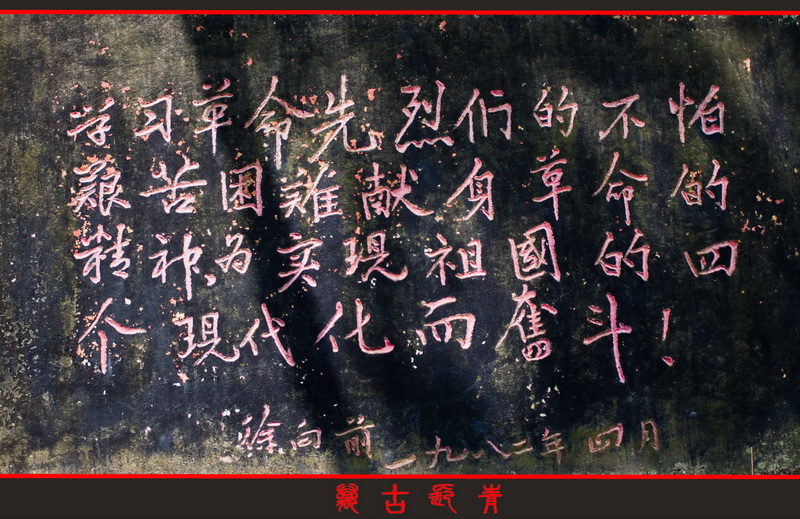 学习革命先烈们的不怕
艰苦困難献身革命的
精神为实現祖國的四
个現代化而奮斗！
徐向前一九八二年四月
萬古長青